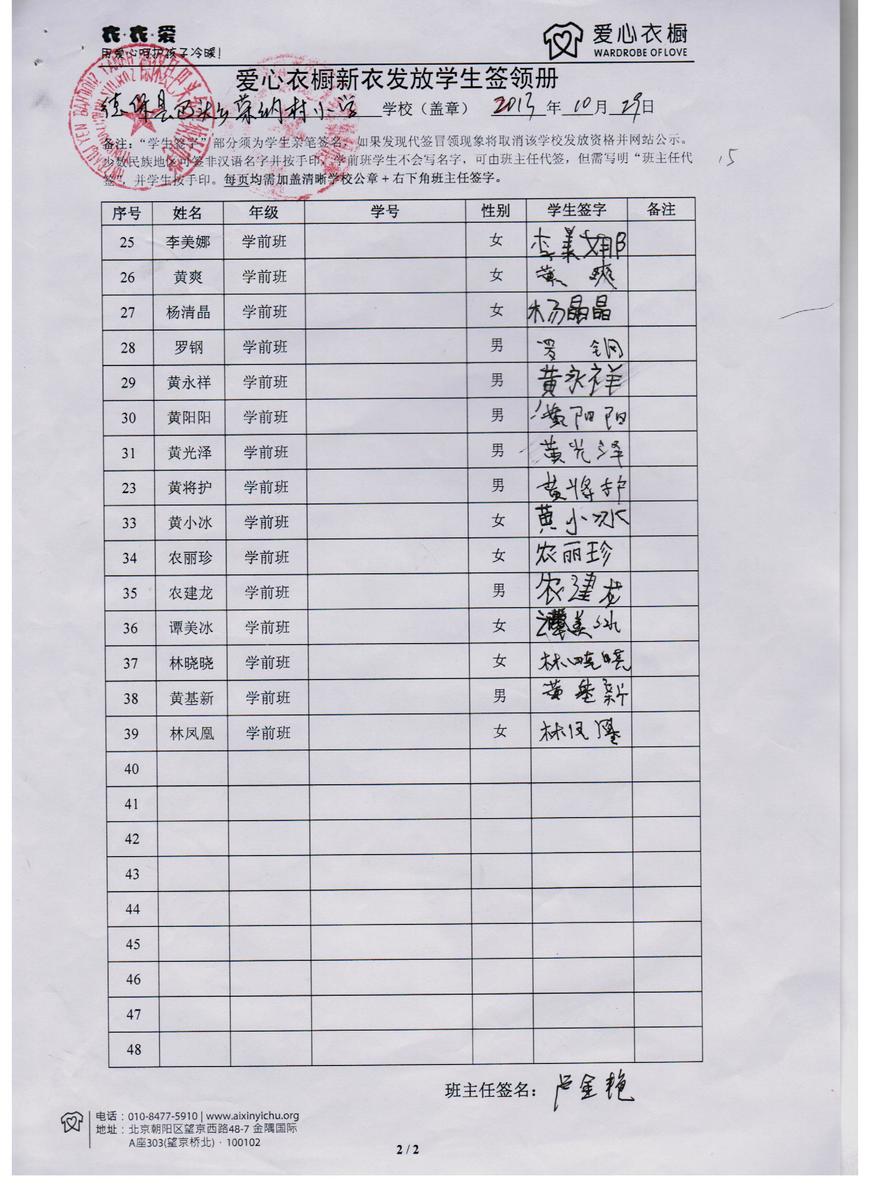 衣·衣·爱
用爱心呵护孩子冷暖!
爱心衣橱
WARDROBE OF LOVE
爱心衣橱新衣发放学生签领册
德保县巴头乡荣纳村小学 学校（盖章） 2013 年 10 月 29 日
备注：“学生签字”部分须为学生亲笔签名，如果发现代签冒领现象将取消该学校发放资格并网站公示。
少数民族地区可签非汉语名字并按手印，学前班学生不会写名字，可由班主任代签，但需写明“班主任代
签”，并学生按手印。每页均需加盖清晰学校公章+右下角班主任签字。
15
序号 姓名 年级 学号 性别 学生签字 备注
25 李美娜 学前班 女 李美娜
26 黄爽 学前班 女 黄爽
27 杨清晶 学前班 女 杨晶晶
28 罗钢 学前班 男 罗钢
29 黄永祥 学前班 男 黄永祥
30 黄阳阳 学前班 男 黄阳阳
31 黄光泽 学前班 男 黄光泽
23 黄将护 学前班 男 黄将护
33 黄小冰 学前班 女 黄小冰
34 农丽珍 学前班 女 农丽珍
35 农建龙 学前班 男 农建龙
36 谭美冰 学前班 女 谭美冰
37 林晓晓 学前班 女 林晓晓
38 黄基新 学前班 男 黄基新
39 林凤凰 学前班 女 林凤凰
40
41
42
43
44
45
46
47
48
班主任签名： 卢金艳
电话：010-8477-5910 | www.aixinyichu.org
地址：北京朝阳区望京西路48-7 金隅国际
A座303(望京桥北) · 100102
2 / 2